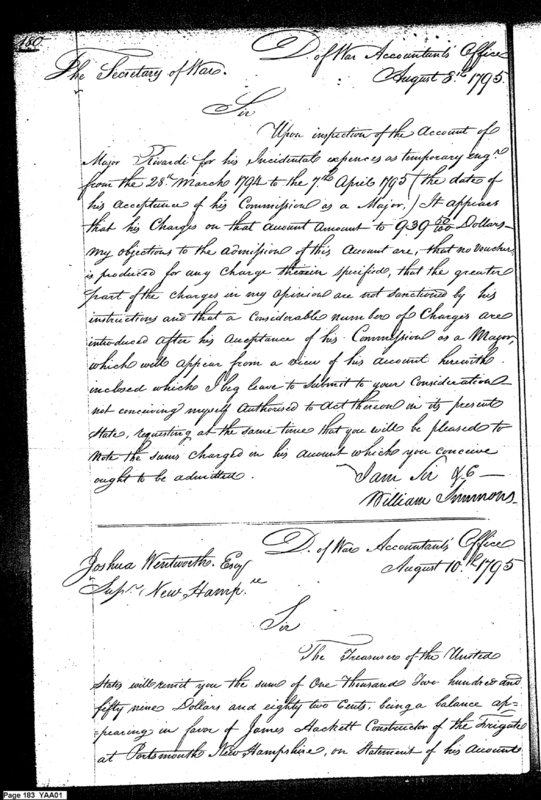 180
D. of War Accountants Office
August 8th 1795.
The Secretary of War.
Sir
Upon inspection of the Account of
Major Rivardi for his Incidental expences as temporary engr.
from the 28th March 1794 to the 7th April 1795 (the date of
his Acceptance of his Commission as a Major,) It appears
that his Charges on that amount Amount to 939 Dollars
my objections to the admission of this Account are, that no Voucher
is produced for any Charge therein specified, that the greater
part of the charges in my opinion are not sanctioned by his
instructions and that a Considerable number of Charges are
introduced after his Acceptance of his Commission as a Major,
which will appear from a view of his account herewith
inclosed which I beg leave to submit to your Consideration
not conceiving myself Authorised to Act thereon in its present
State, requesting at the same time that you will be pleased to
Note the sums Charged in his amount which you conceive
ought to be admitted.
I am Sir &C
William Simmons
D. of War Accountants Office
August 10th 1795
Joshua Wentworth Esqr
Supr. New Hampre
Sir
The Treasurer of the United
States will remit you the sum of One thousand Two hundred and
fifty nine Dollars and eighty two Cents, being a balance ap=
=pearing in favor of James Hackett Constructor of the Frigate
at Portsmouth New Hampshire, on Statement of his Accounts
Page 183 YAA01